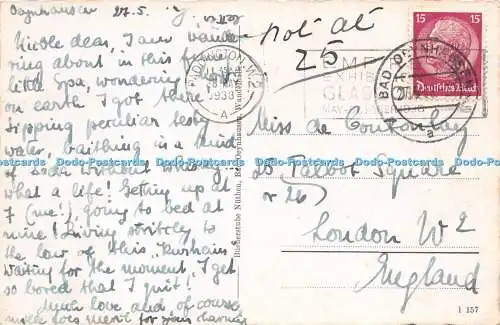 Oeynhausen 27.5.
Nicole dear, I am wande
ring about in this funny
little spa, wondering how
on earth I got there
sipping peculiar testy
water, baithing in a kind
of soda without whisky
what a life! Getting up at
7 (me!), going to bed at
nine! Living strictly to
the law of this "Kurhaus"
waiting for the moment, I get
so bored that I quit!
Much love and, of course
letter
not at
25
PADDINGTON. W.2
1938
A
EMPIRE
EXHIBITION
GLASGOW
MAY-
BAD OEYNHAUSEN
a
15 15
Deutsches Reich
Miss de
25 Talbot Square
or 26
London W2
England
Bücherstube Nüthon, Bad Oeynhausen,
1 157
Dodo-Postcards Dodo-Postcards Dodo-Postcards Dodo-Postcards Dodo-Postcards